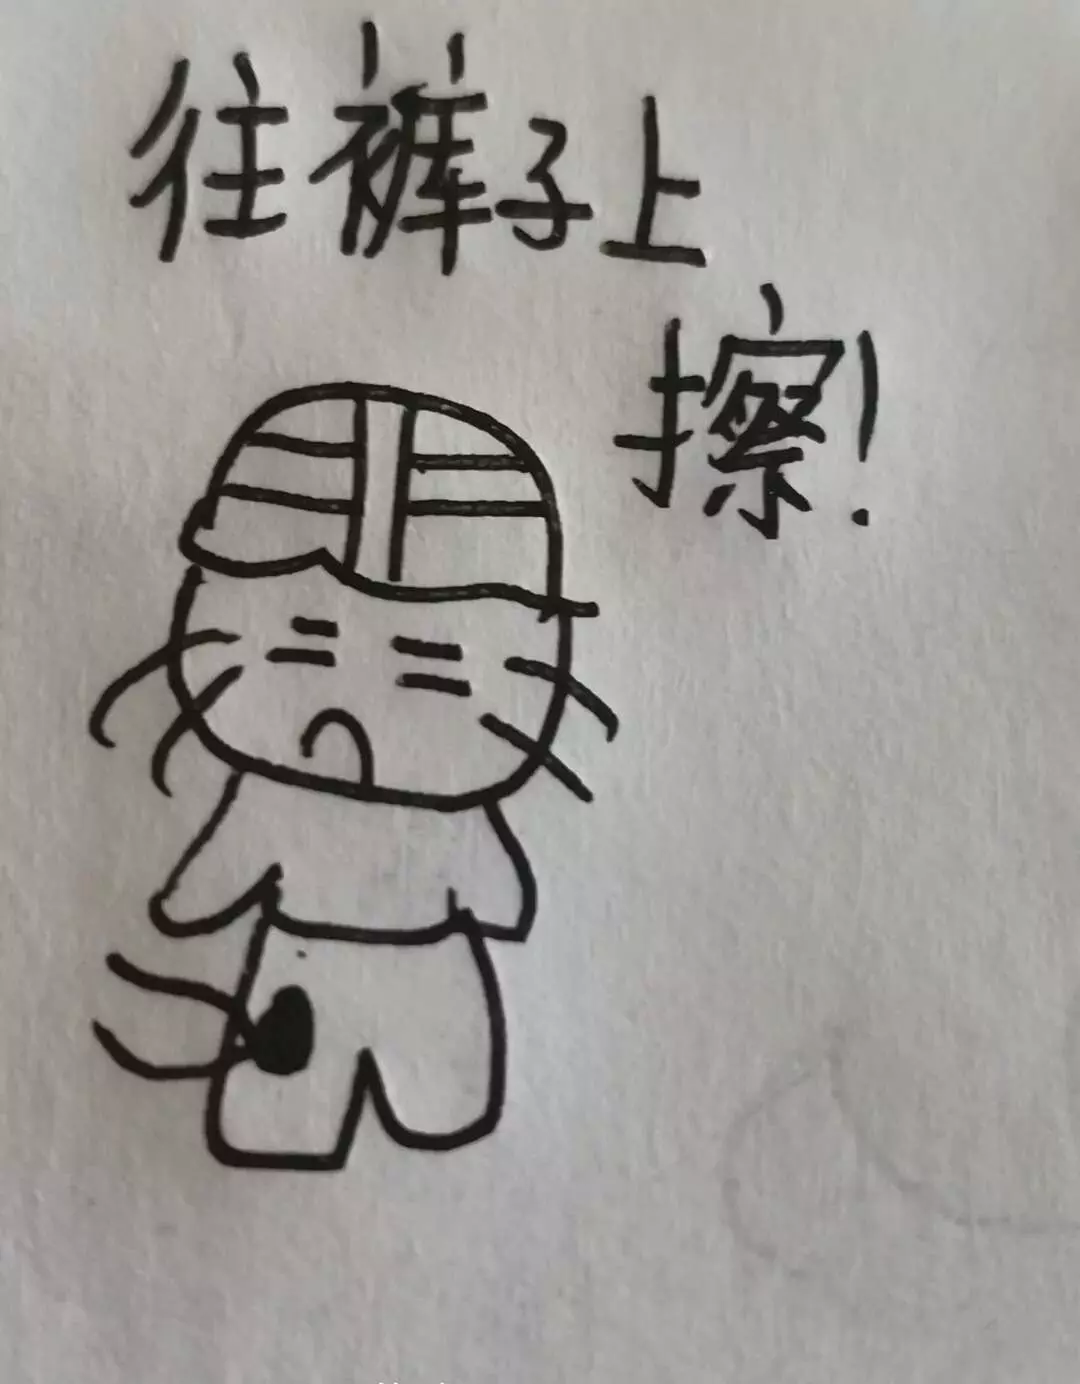 往裤子上
擦!